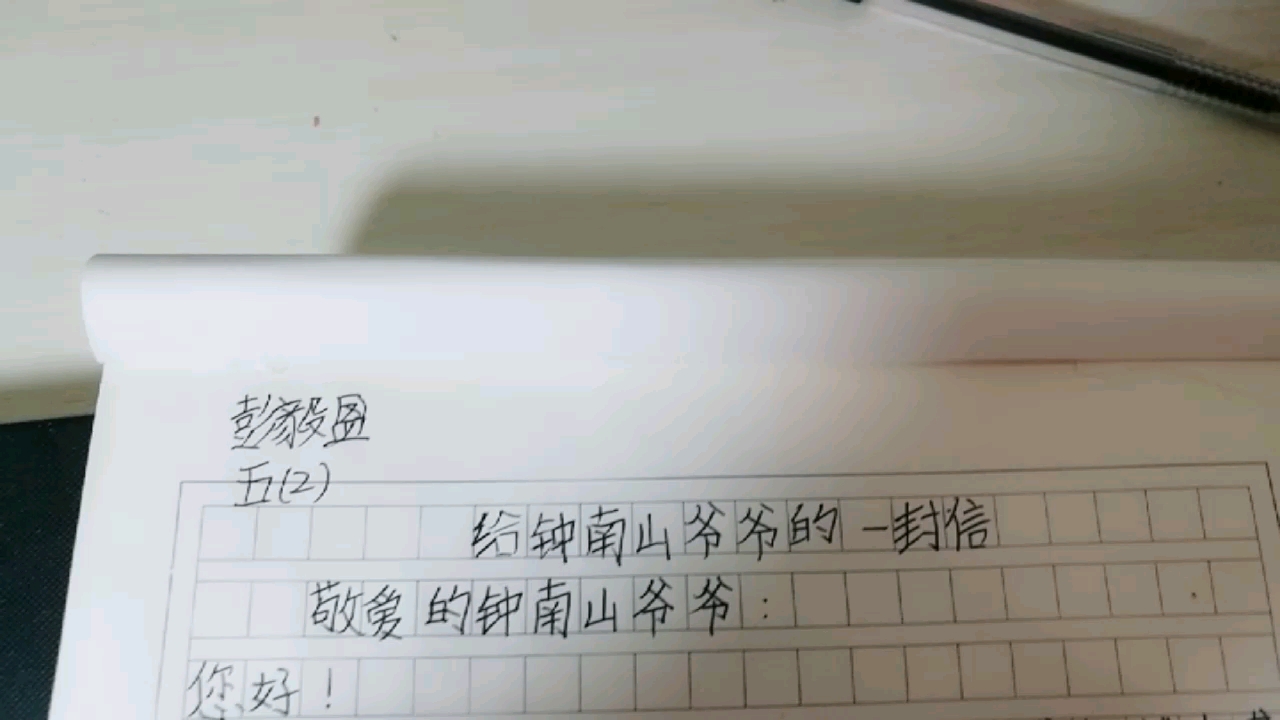 彭毅盈
五(2)
给钟南山爷爷的一封信
敬爱的钟南山爷爷：
您好！